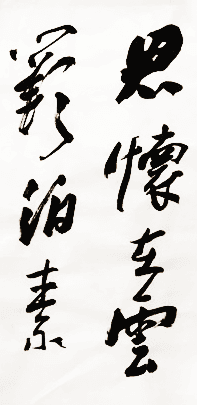 思懷在雲
闕泊素